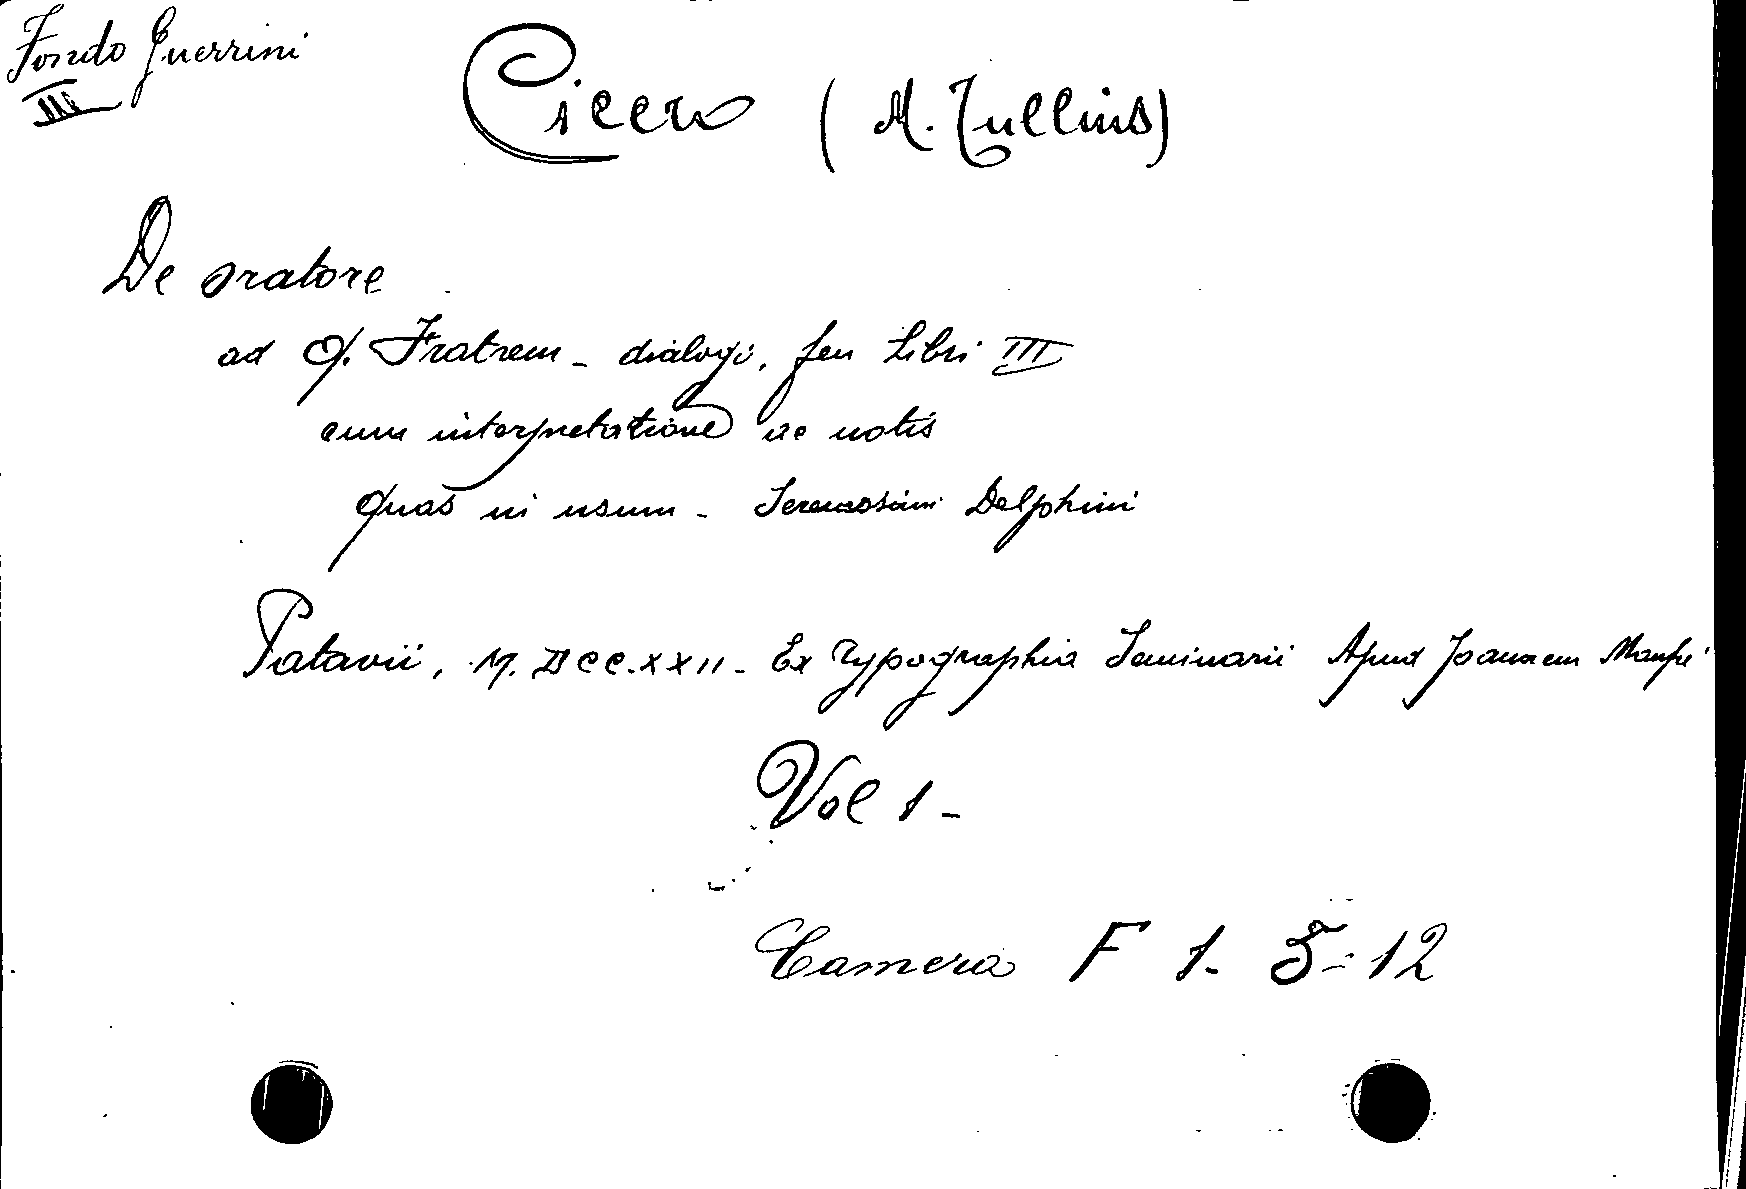 Fondo Guerrini
III
Cicero (M. Tullius)
De oratore
ad Q. Fratrem - dialogi, seu Libri III
cum interpretatione ac notis
quas in usum - Serenissimi Delphini
Patavii, M.DCC.XXII - Ex Typographia Seminarii Apud Joannem Manfrè
Vol 1 -
Camera F 1 - 5 - 12